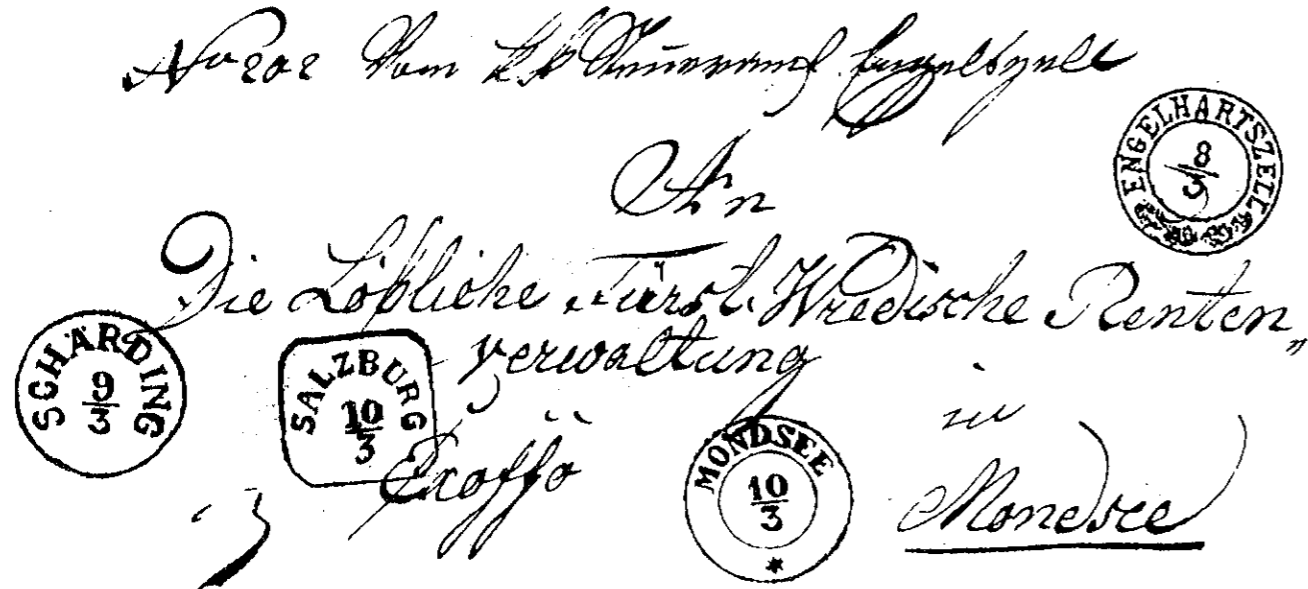 No 202 Vom k k Steueramt Engelszell
ENGELHARTSZELL
8
3
An
Die Löbliche Fürstl. Wredische Renten„
verwaltung
SCHÄRDING
9
3
SALZBURG
10
3
zu
Exoffo
MONDSEE
10
3
Mondsee